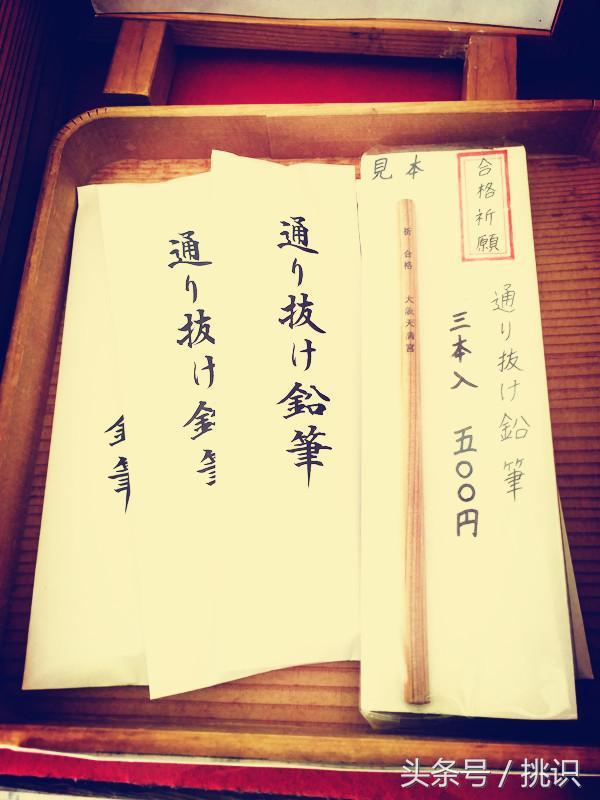 見本
合格祈願
通り抜け鉛筆
三本入 五〇〇円
祈 合格 大阪天満宮
通り抜け鉛筆
通り抜け鉛筆
鉛筆
头条号 / 挑识